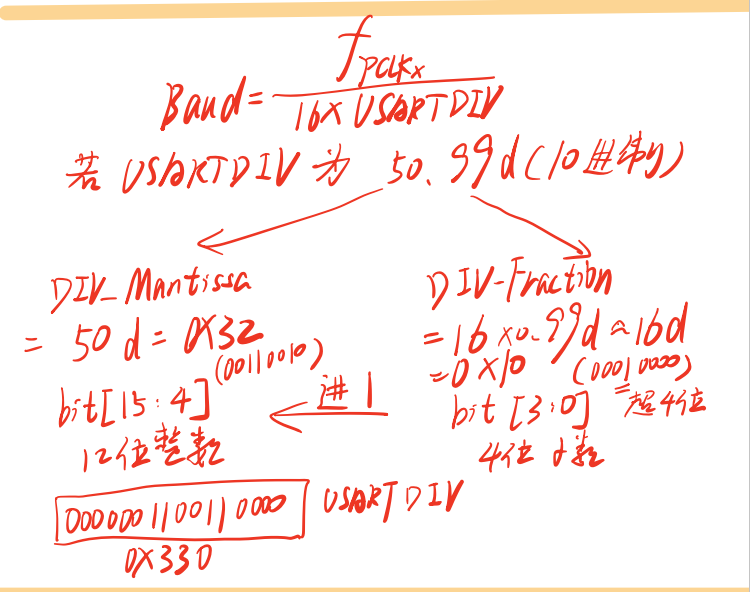 Baud = fPCLKx / 16 × USARTDIV
若 USARTDIV 为 50.99d (10进制)
DIV_Mantissa
= 50d = 0X32
(00110010)
bit[15:4]
12位整数
进1
DIV-Fraction
= 16 × 0.99d ≈ 16d
= 0×10 (00010000)
超4位
bit [3:0]
4位小数
0000001100110000 USARTDIV
0X330